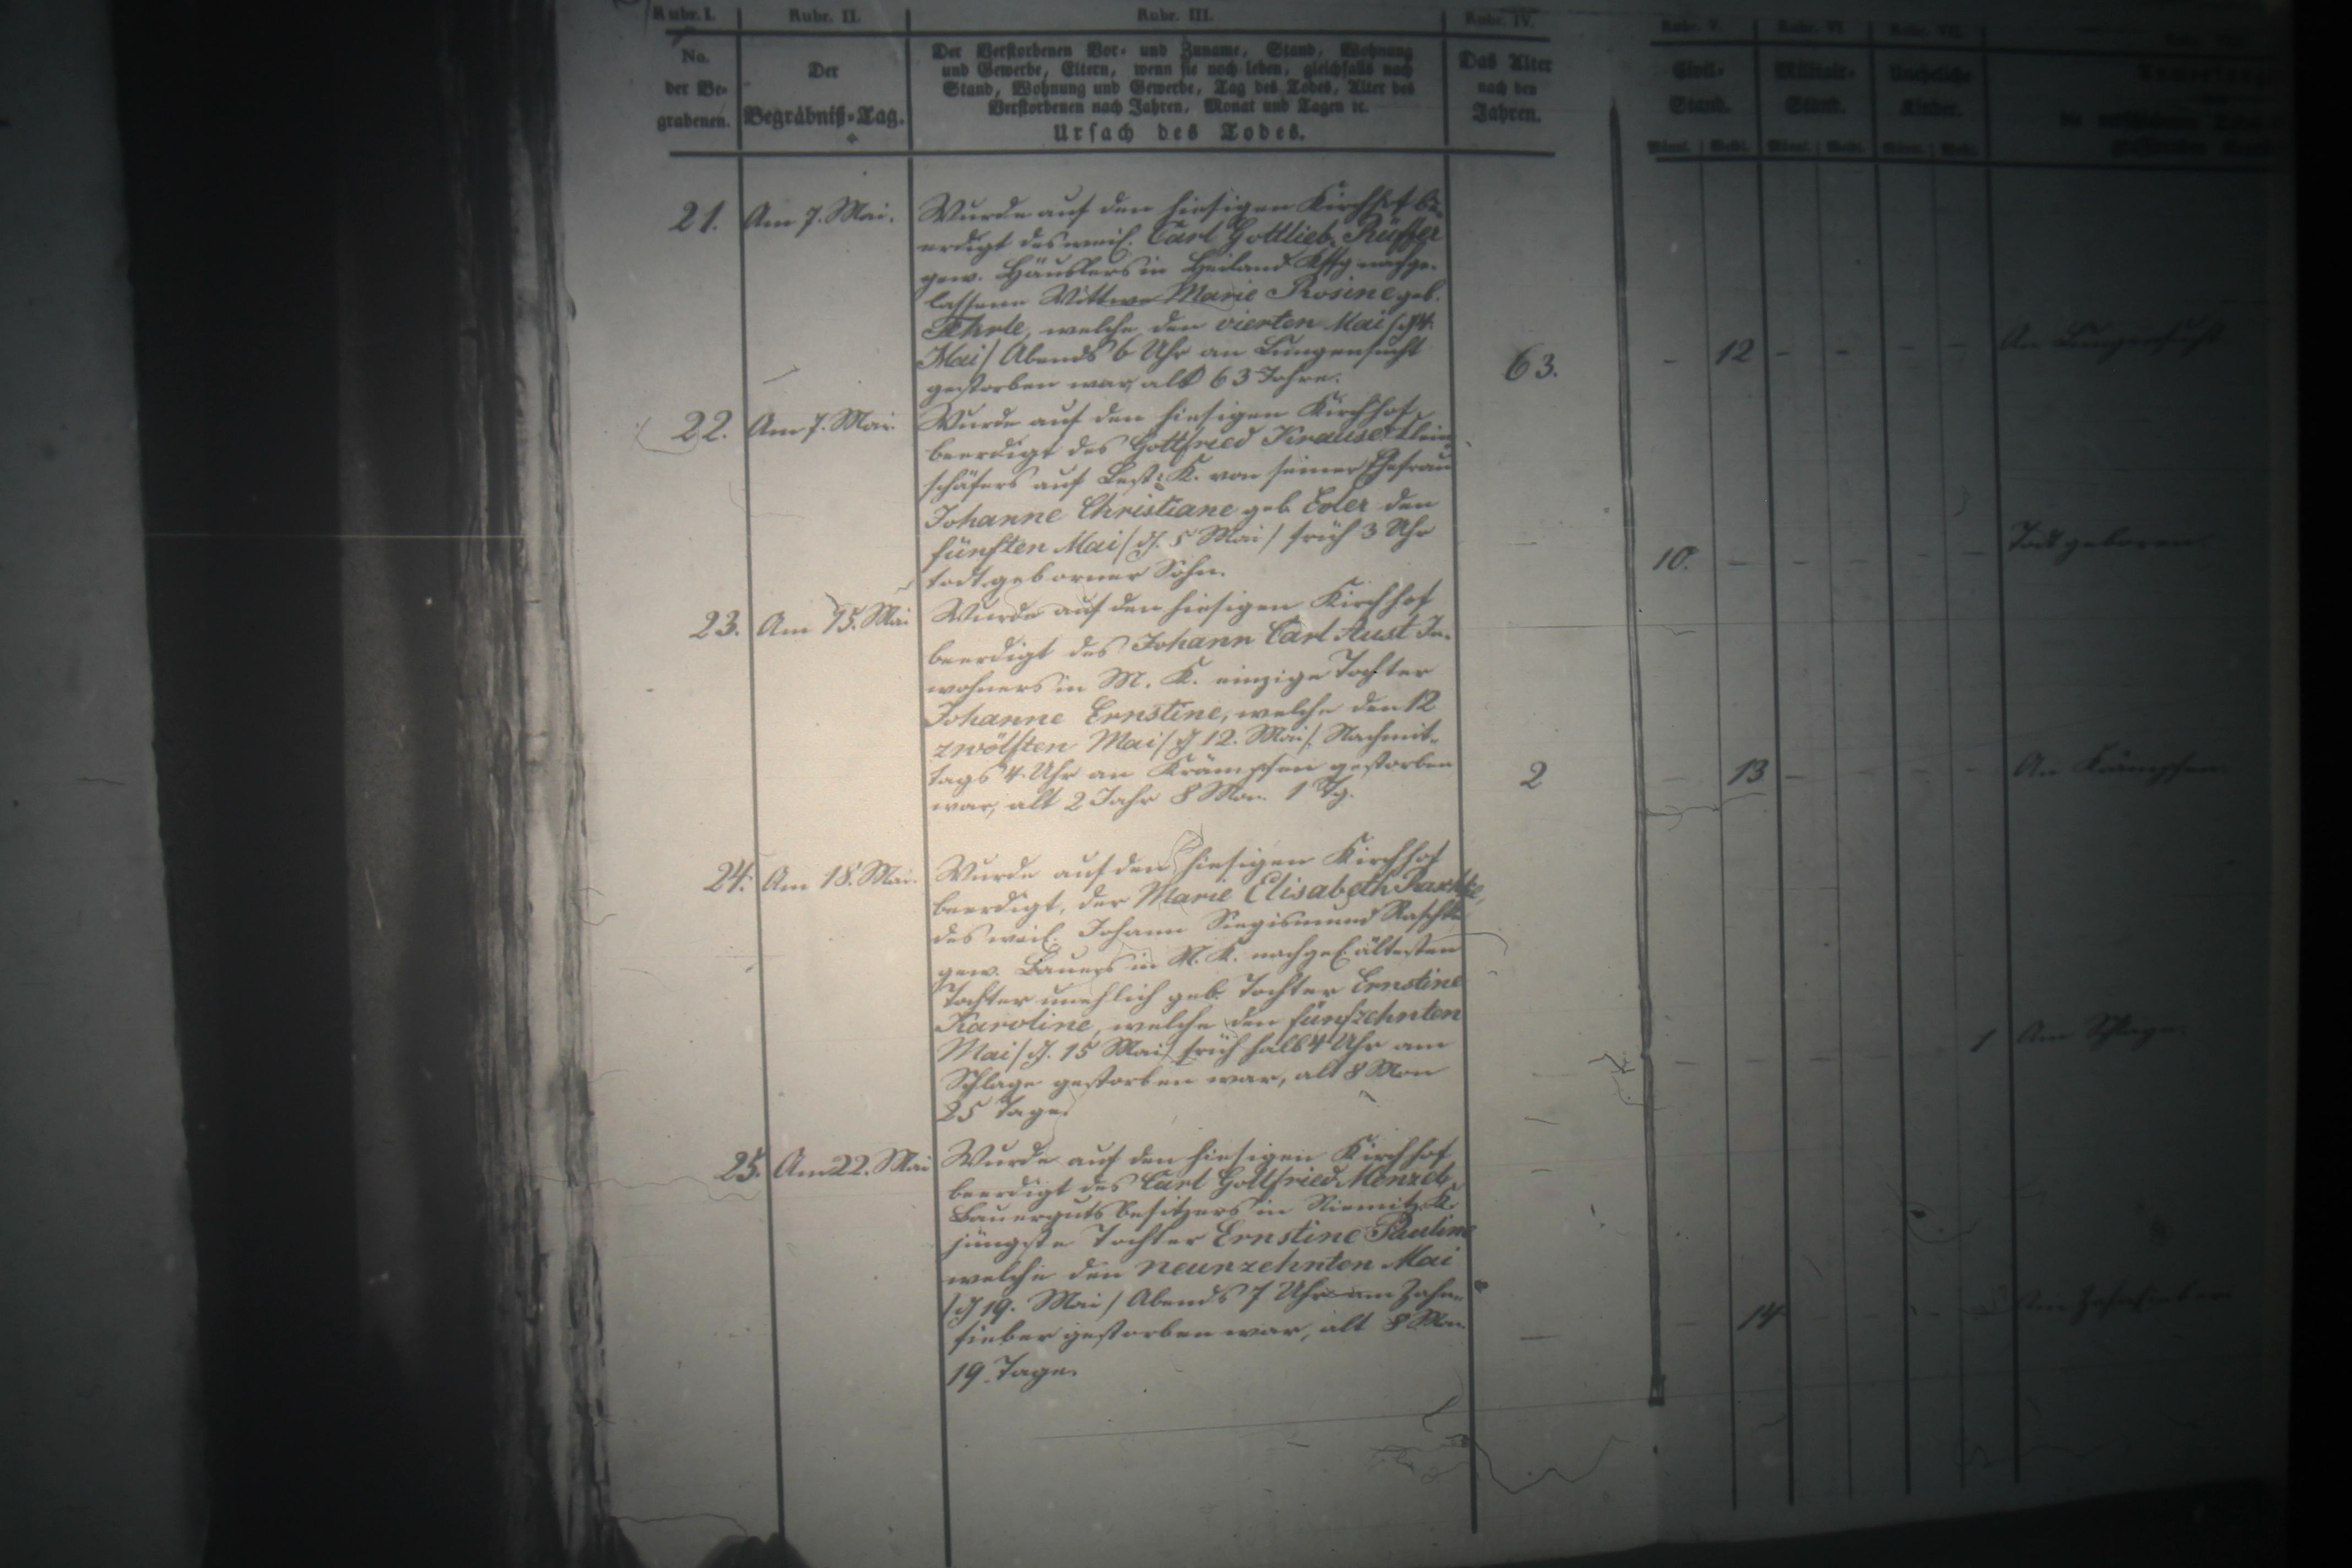 Rubr. I. Rubr. II. Rubr. III. Rubr. IV. Rubr. V. Rubr. VI Rubr. VII.
No.
der Be-
grabenen.
Der
Begräbniß-Tag.
Der Verstorbenen Vor- und Zuname, Stand, Wohnung
und Gewerbe, Eltern, wenn sie noch leben, gleichfalls nach
Stand, Wohnung und Gewerbe, Tag des Todes, Alter des
Verstorbenen nach Jahren, Monat und Tagen ꝛc.
Ursach des Todes.
Das Alter
nach den
Jahren.
Civil-
Stand.
Militair-
Stand.
Uneheliche
Kinder.
Männl. Weibl. Männl. Weibl. Männl. Weibl.
21. Am 7. Mai. Wurde auf den hiesigen Kirchhof be-
erdigt des weil. Carl Gottlieb
gew. Häuslers in nachge-
lassene Wittwe Marie Rosine geb.
welche den vierten Mai / d. 4.
Mai / Abends 6 Uhr an Lungensucht
gestorben war, alt 63 Jahre.
63. - 12 - - - - An Lungensucht
22. Am 7. Mai. Wurde auf den hiesigen Kirchhof
beerdigt des Gottfried Krause Klein-
schäfers auf K. von seiner Ehefrau
Johanne Christiane geb. Eder den
fünften Mai / d. 5 Mai / früh 3 Uhr
todtgeborner Sohn.
- 10. - - - - - Todtgeboren.
23. Am 15. Mai Wurde auf den hiesigen Kirchhof
beerdigt des Johann Carl Aust In-
wohners in M. K. einzige Tochter
Johanne Ernstine, welche den 12
zwölften Mai / d 12. Mai / Nachmit-
tags 4 Uhr an Krämpfen gestorben
war, alt 2 Jahr 8 Mon. 1 Tg.
2 - 13 - - - - An Krämpfen.
24. Am 18. Mai. Wurde auf den hiesigen Kirchhof
beerdigt, der Marie Elisabeth Raschke,
des weil. Johann Siegismund Raschke
gew. Bauers in N. K. nachgel. ältesten
Tochter unehlich geb. Tochter Ernstine
Karoline, welche den fünfzehnten
Mai / d. 15 Mai / früh halb 4 Uhr am
Schlage gestorben war, alt 8 Mon
25 Tage.
- - - - - - 1 Am Schlage.
25. Am 22. Mai Wurde auf den hiesigen Kirchhof
beerdigt des Carl Gottfried Menzel,
Bauerguts besitzers in K.
jüngste Tochter Ernstine Pauline
welche den neunzehnten Mai
/ d 19. Mai / Abends 7 Uhr am Zahn-
fieber gestorben war, alt 8 Mon.
19. Tage.
- - 14 - - - - Am Zahnfieber